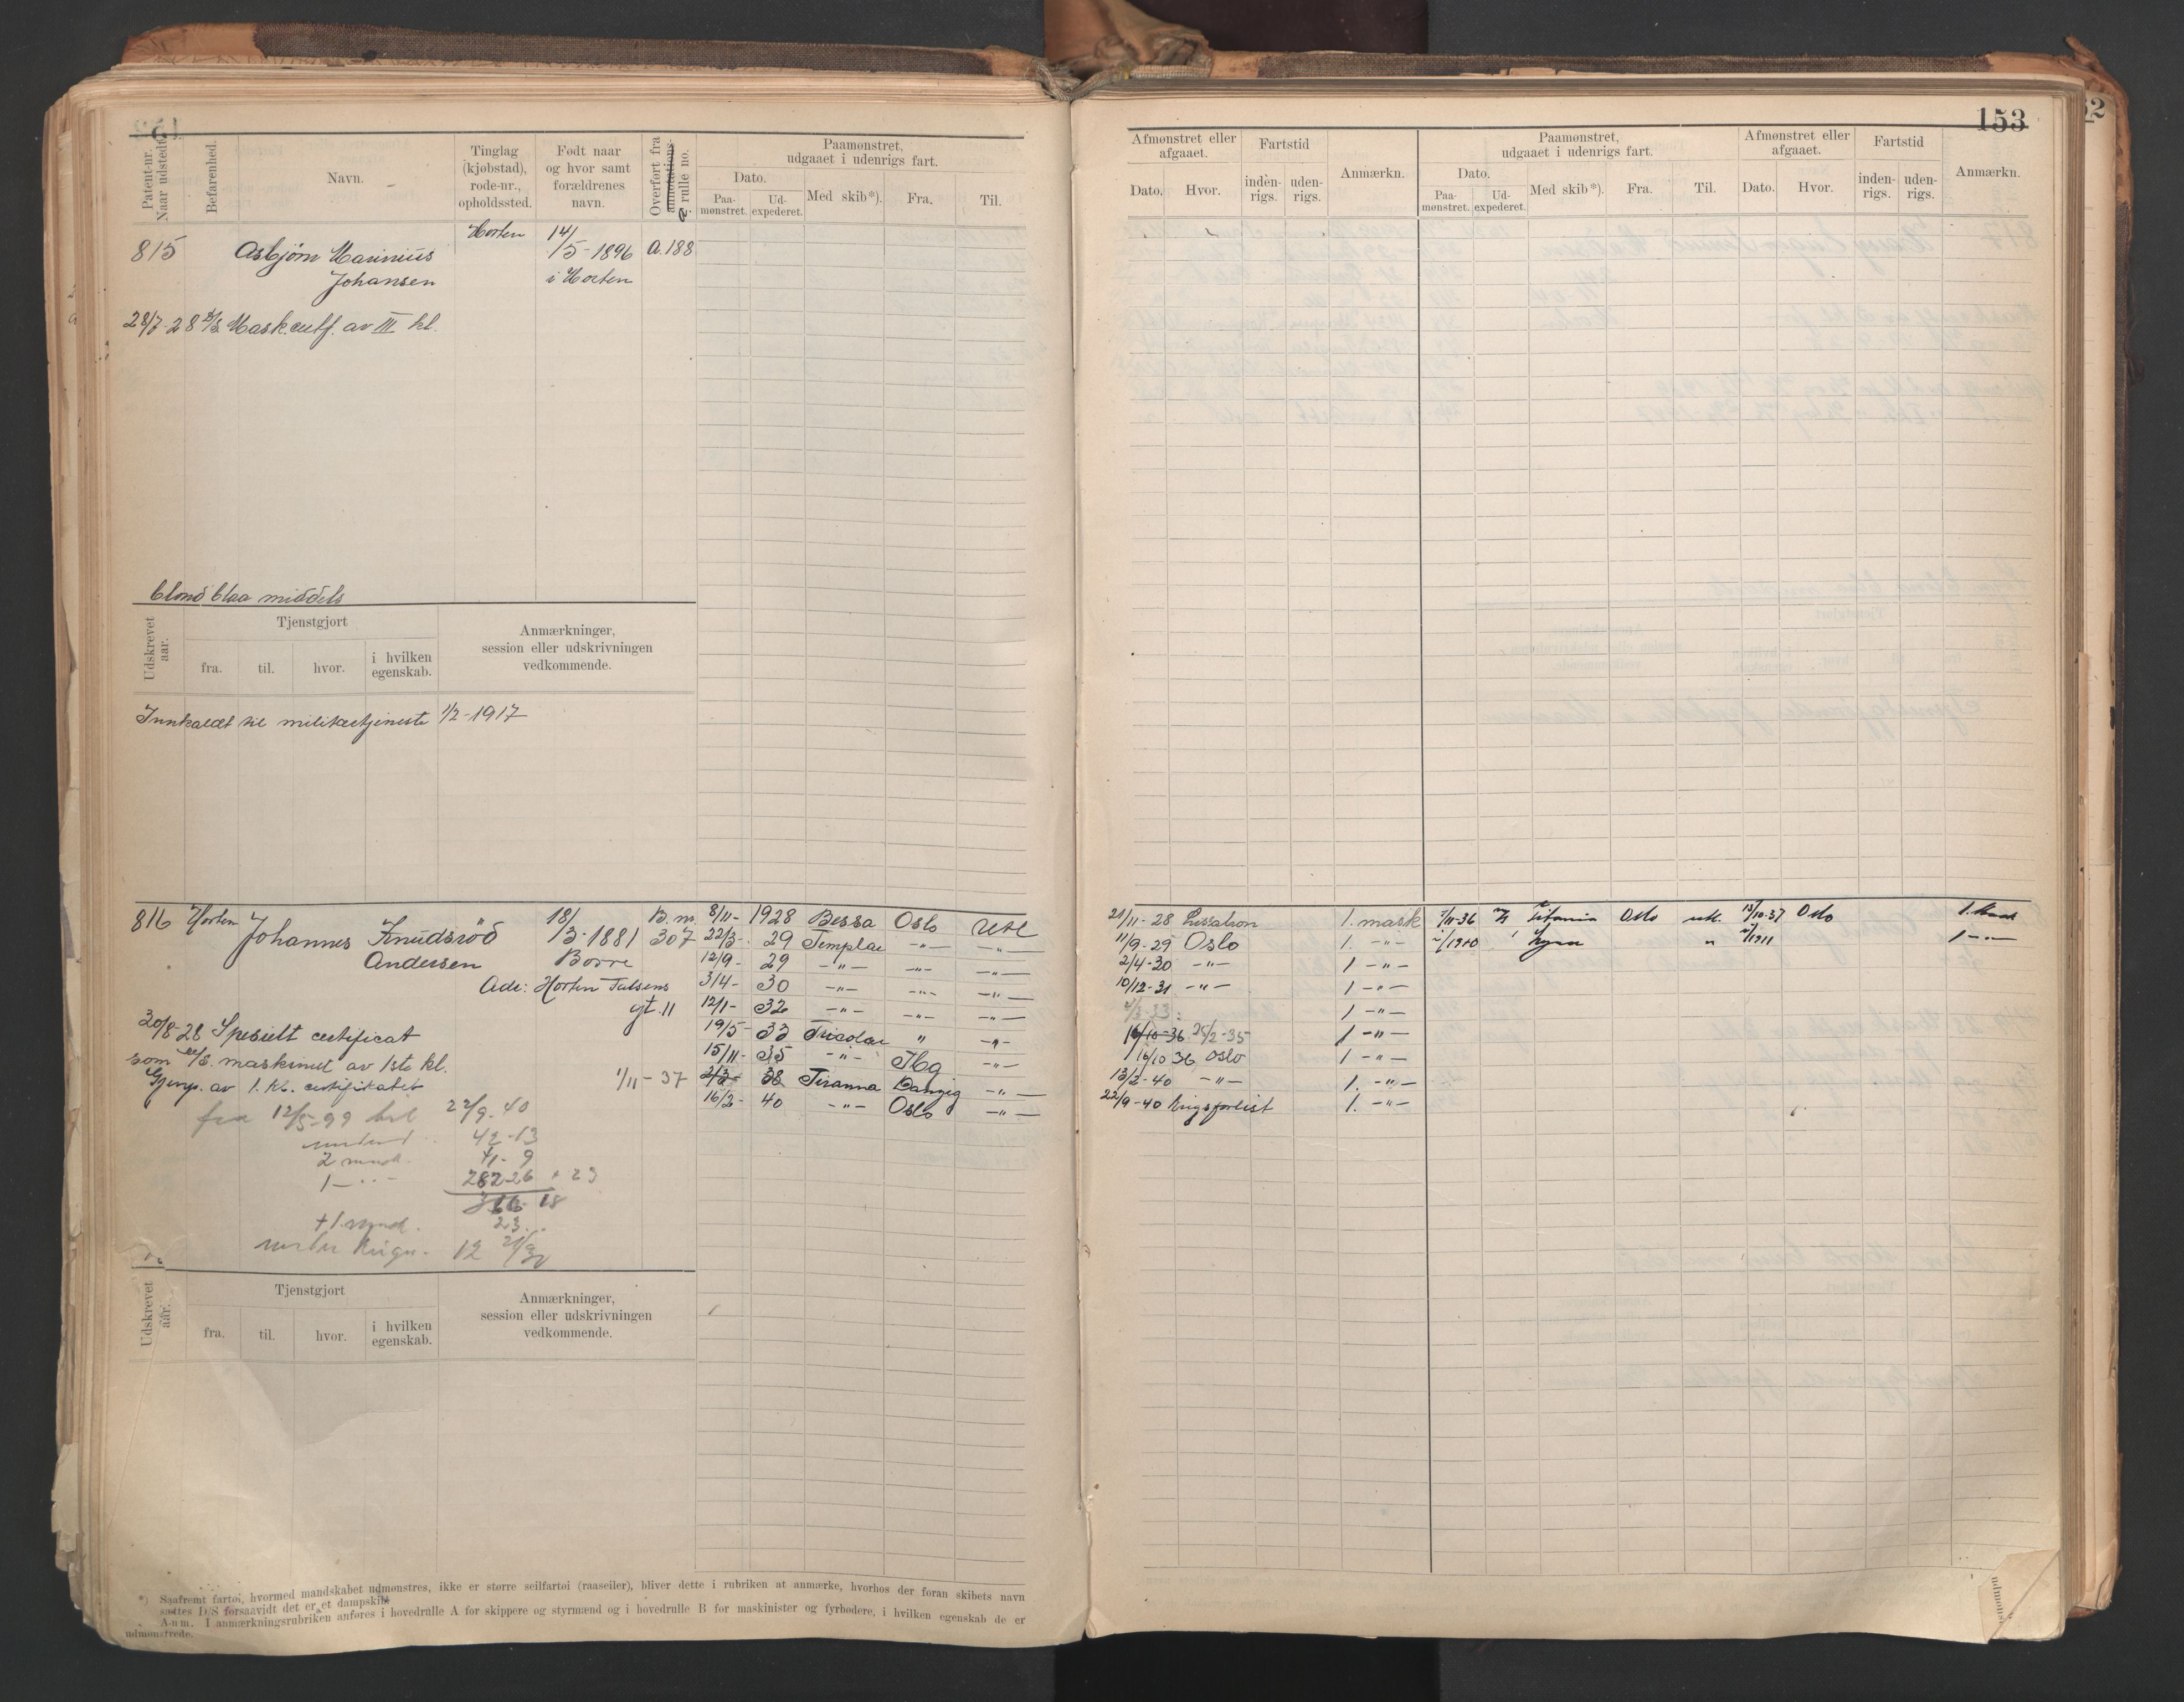 153
Patent-nr. Naar udstedt.
Befarenhed.
Navn.
Tinglag (kjøbstad), rode-nr., opholdssted.
Født naar og hvor samt forældrenes navn.
Overført fra annotations- rulle no.
Paamønstret, udgaaet i udenrigs fart.
Dato.
Paa- mønstret.
Ud- expederet.
Med skib*).
Fra.
Til.
Afmønstret eller afgaaet.
Dato.
Hvor.
Fartstid
inden- rigs.
uden- rigs.
Anmærkn.
Paamønstret, udgaaet i udenrigs fart.
Dato.
Paa- mønstret.
Ud- expederet.
Med skib*).
Fra.
Til.
Afmønstret eller afgaaet.
Dato.
Hvor.
Fartstid
inden- rigs.
uden- rigs.
Anmærkn.
Horten 14/
815 Asbjørn Marinius /5-1896 A.188
Johansen i Horten
28/7-28 Mask.certf. av III kl.
blond blaa middels
Udskrevet aar.
Tjenstgjort
fra.
til.
hvor.
i hvilken egenskab.
Anmærkninger, session eller udskrivningen vedkommende.
Innkaldt til militærtjeneste 1/2-1917
816 Horten Johannes Knudsrød 18/ B.m. 8/11- 1928 Bessa Oslo Utl 21/11-28 1. mask 7/11-36 Titania Oslo utl. 13/10-37 Oslo 1. Mask
/3-1881 307 22/3- 29 Templar -"- -"- 11/9-29 Oslo 1. -"-
Andersen Borre 12/9- 29 -"- -"- -"- 2/4-30 -"- 1 -"-
Adr: Horten 3/4- 30 -"- -"- -"- 10/12-31 -"- 1 -"-
gt. 11 12/1- 32 -"- -"- -"- 1 -"-
20/8-28 Spesielt certificat 19/5- 33 Tricolar " -"- 16/10-36 25/2-35 1 -"-
som maskinist av 1ste kl. 15/11- 35 -"- Tbg -"- 16/10 36 Oslo 1 -"-
Gjenp. av 1. kl. certifikatet 1/11-37 38 Tiranna Danzig -"- 13/2-40 -"- 1. -"-
16/2- 40 -"- Oslo -"- 22/9-40 Krigsforlist 1. -"-
fra 12/5-99 22/9-40
42-13
2 mnd. 9
282-26 + 23
18
+1 mnd. 23
12
Udskrevet aar.
Tjenstgjort
fra.
til.
hvor.
i hvilken egenskab.
Anmærkninger, session eller udskrivningen vedkommende.
*) Saafremt fartøi, hvormed mandskabet udmønstres, ikke er større seilfartøi (raaseiler), bliver dette i rubriken at anmærke, hvorhos der foran skibets navn
sættes D/S forsaavidt det er et dampskib.
Anm. I anmærkningsrubriken anføres i hovedrulle A for skippere og styrmænd og i hovedrulle B for maskinister og fyrbødere, i hvilken egenskab de er
udmønstrede.